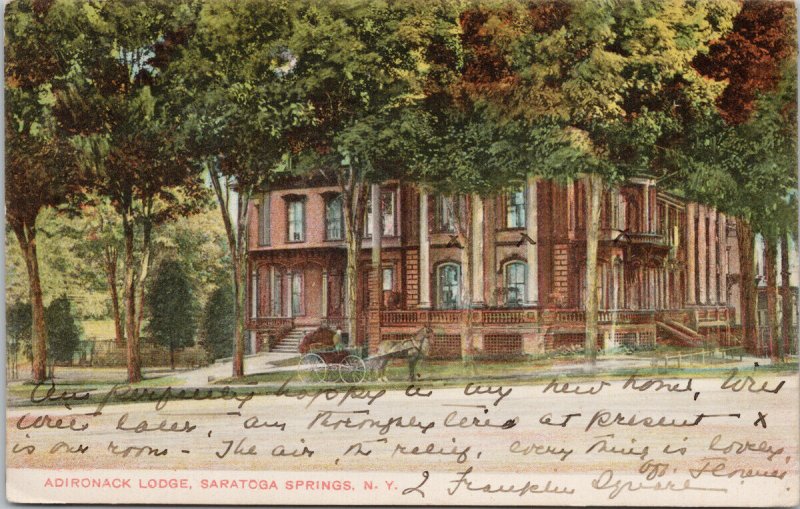 Am perfectly happy in my new home, Will
Will later, am thoroughly tired at present X
is our room - The air, the relief, every thing is lovely
ADIRONACK LODGE, SARATOGA SPRINGS, N. Y. 2 Franklin Square